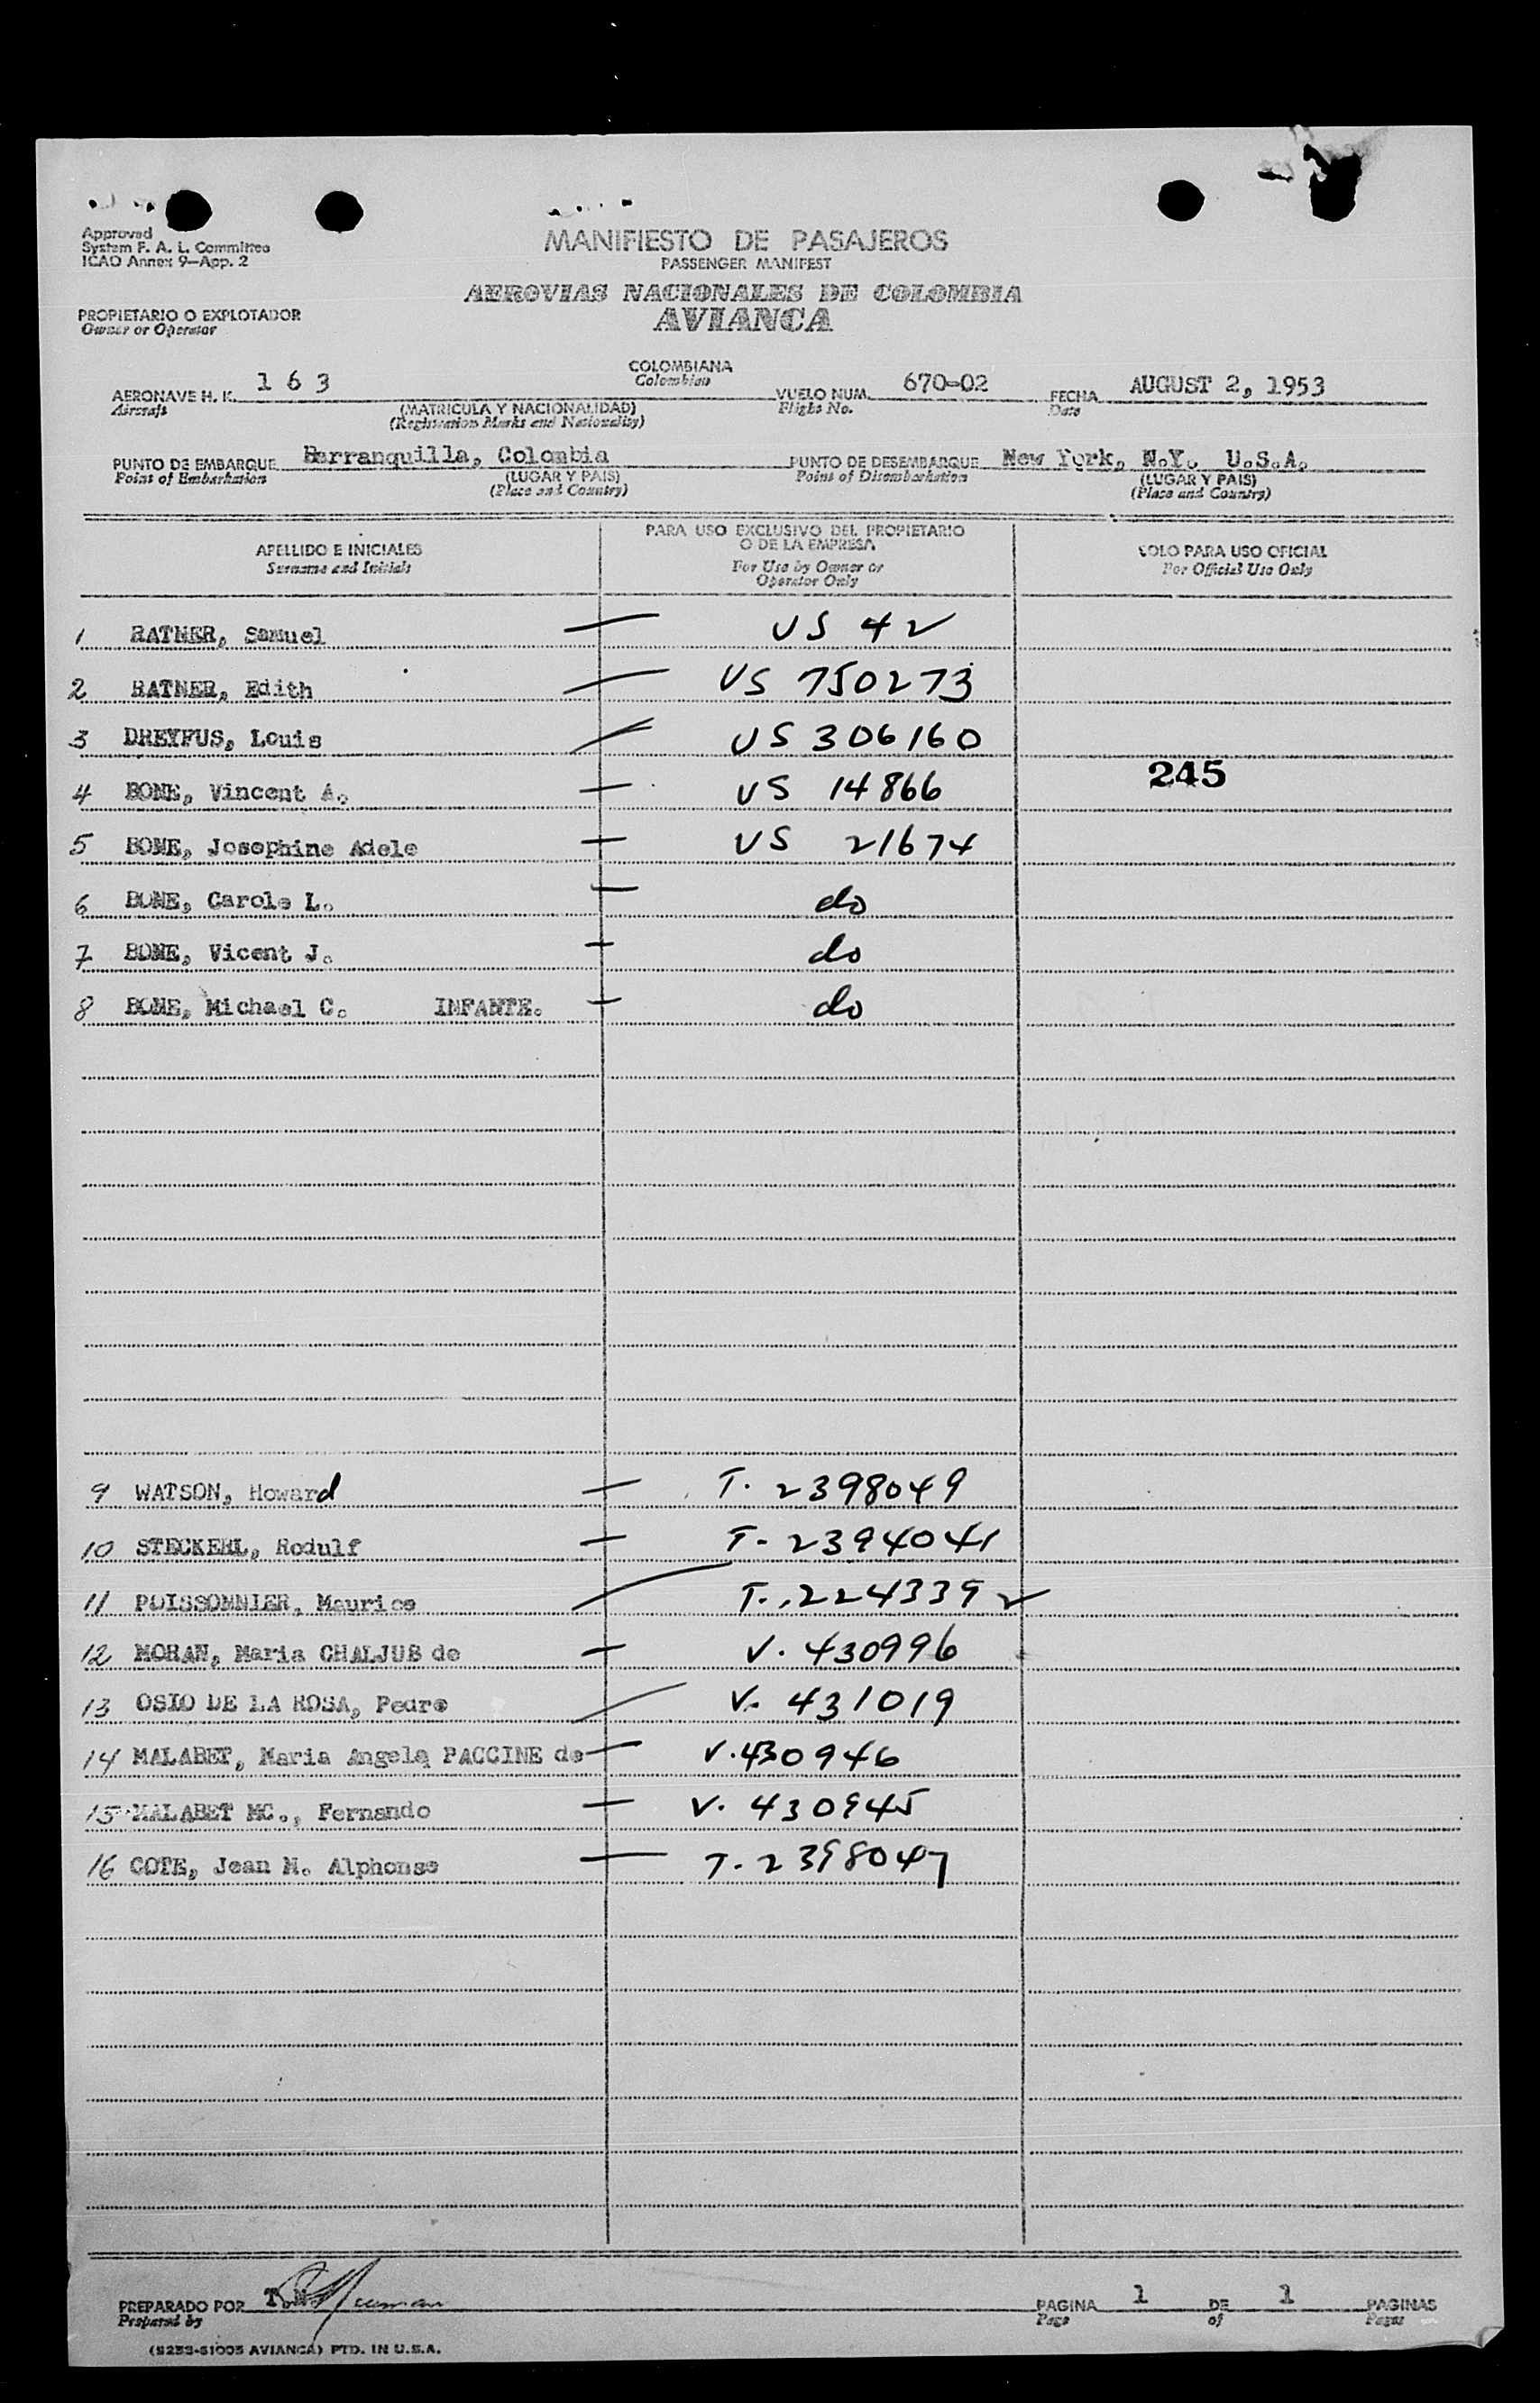 Approved
System F. A. L. Committee
ICAO Annex 9—App. 2
MANIFIESTO DE PASAJEROS
PASSENGER MANIFEST
AEROVIAS NACIONALES DE COLOMBIA
AVIANCA
PROPIETARIO O EXPLOTADOR
Owner or Operator
COLOMBIANA
Colombian
AERONAVE H. K. 1 6 3 VUELO NUM. 670-02 FECHA AUGUST 2, 1953
Aircraft (MATRICULA Y NACIONALIDAD) Flight No. Date
(Registration Marks and Nationality)
PUNTO DE EMBARQUE Barranquilla, Colombia PUNTO DE DESEMBARQUE New York, N.Y. U.S.A.
Point of Embarkation (LUGAR Y PAIS) Point of Disembarkation (LUGAR Y PAIS)
(Place and Country) (Place and Country)
APELLIDO E INICIALES
Surname and Initials
PARA USO EXCLUSIVO DEL PROPIETARIO
O DE LA EMPRESA
For Use by Owner or
Operator Only
SOLO PARA USO OFICIAL
For Official Use Only
1 RATNER, Samuel — US 42
2 RATNER, Edith — US 750273
3 DREYFUS, Louis — US 306160
245
4 BONE, Vincent A. — US 14866
5 BONE, Josephine Adele — US 21674
6 BONE, Carole L. — do
7 BONE, Vicent J. — do
8 BONE, Michael C. INFANTE. — do
9 WATSON, Howard — T. 2398049
10 STECKERL, Rodulf — T- 2394041
11 POISSONNIER, Maurice — T. 224339 ✓
12 MORAN, Maria CHALJUB de — V. 430996
13 OSIO DE LA ROSA, Pedro — V. 431019
14 MALABET, Maria Angela PACCINE de — V. 430946
15 MALABET MC., Fernando — V. 430945
16 COTE, Jean M. Alphonse — T. 2398047
PREPARADO POR T.N.
Prepared by
PAGINA 1 DE 1 PAGINAS
Page of Pages
(S253-61005 AVIANCA) PTD. IN U.S.A.